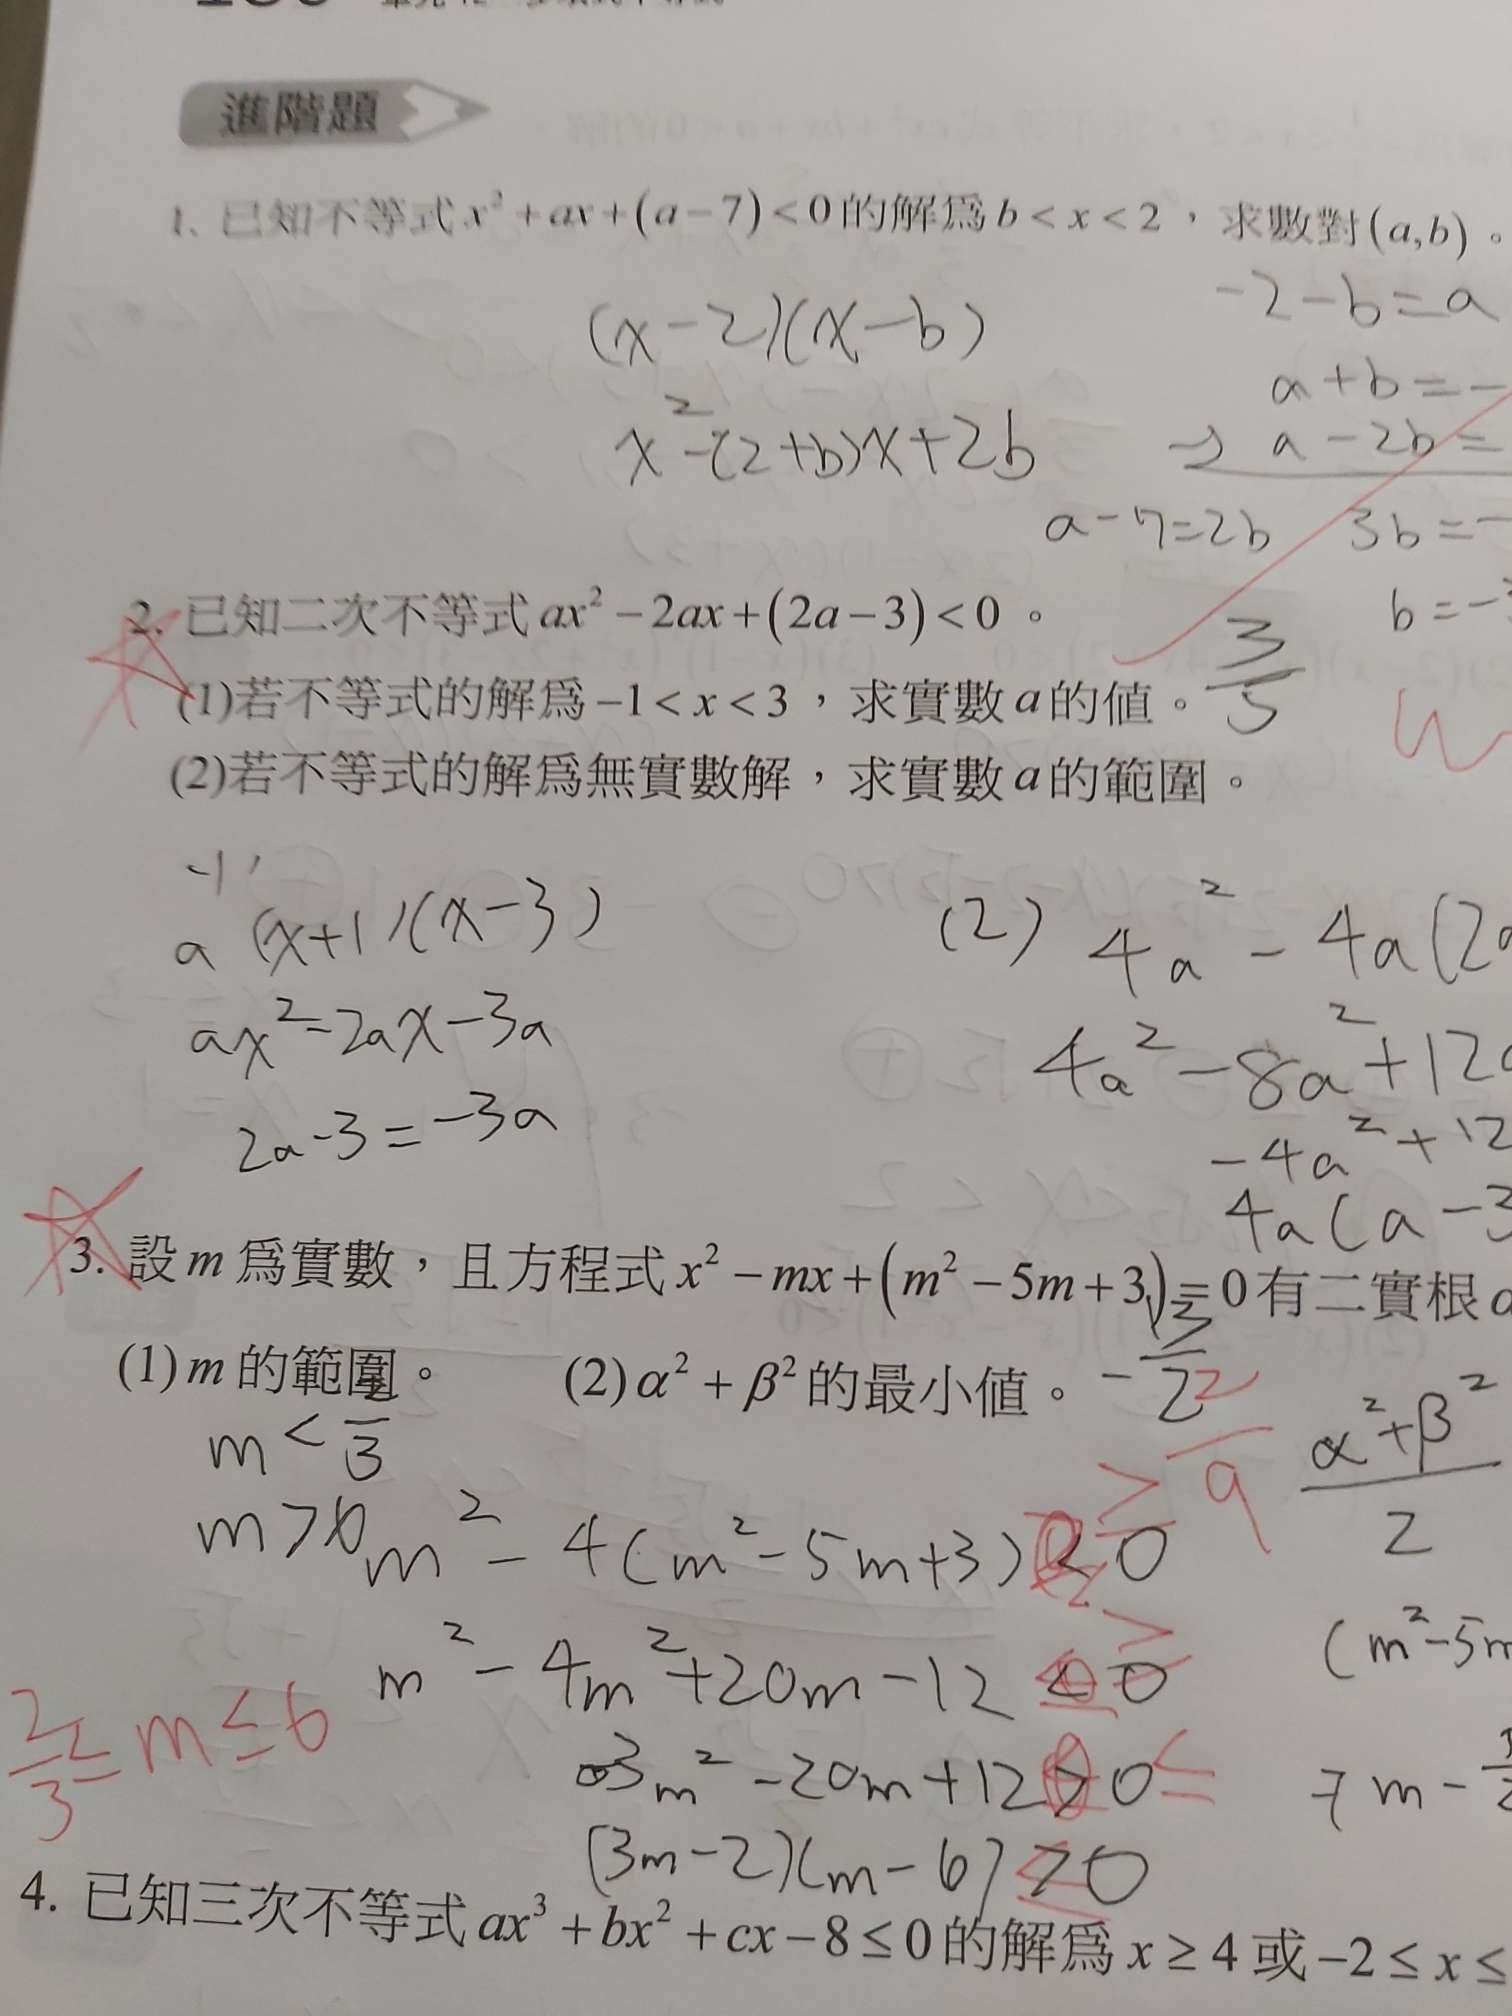 進階題
1. 已知不等式 x² + ax + (a − 7) < 0 的解爲 b < x < 2，求數對 (a,b)。
(x − 2)(x − b)
x² − (2 + b)x + 2b
−2 − b = a
a + b = −
→ a − 2b =
a − 7 = 2b
3b = −
b = −
2. 已知二次不等式 ax² − 2ax + (2a − 3) < 0。
(1)若不等式的解爲 −1 < x < 3，求實數 a 的值。 3/5
(2)若不等式的解爲無實數解，求實數 a 的範圍。
a (x + 1)(x − 3)
ax² − 2ax − 3a
2a − 3 = −3a
(2) 4a² − 4a(2a
4a² − 8a² + 12a
−4a² + 12
4a(a − 3
3. 設 m 爲實數，且方程式 x² − mx + (m² − 5m + 3) = 0 有二實根 α
(1) m 的範圍。 (2) α² + β² 的最小值。
m < 2/3
m > 6
m² − 4(m² − 5m + 3) ≥ 0
m² − 4m² + 20m − 12 ≥ 0
3m² − 20m + 12 ≤ 0
(3m − 2)(m − 6) ≤ 0
2/3 ≤ m ≤ 6
2/9
α² + β²
2
(m² − 5m
7m −
4. 已知三次不等式 ax³ + bx² + cx − 8 ≤ 0 的解爲 x ≥ 4 或 −2 ≤ x ≤